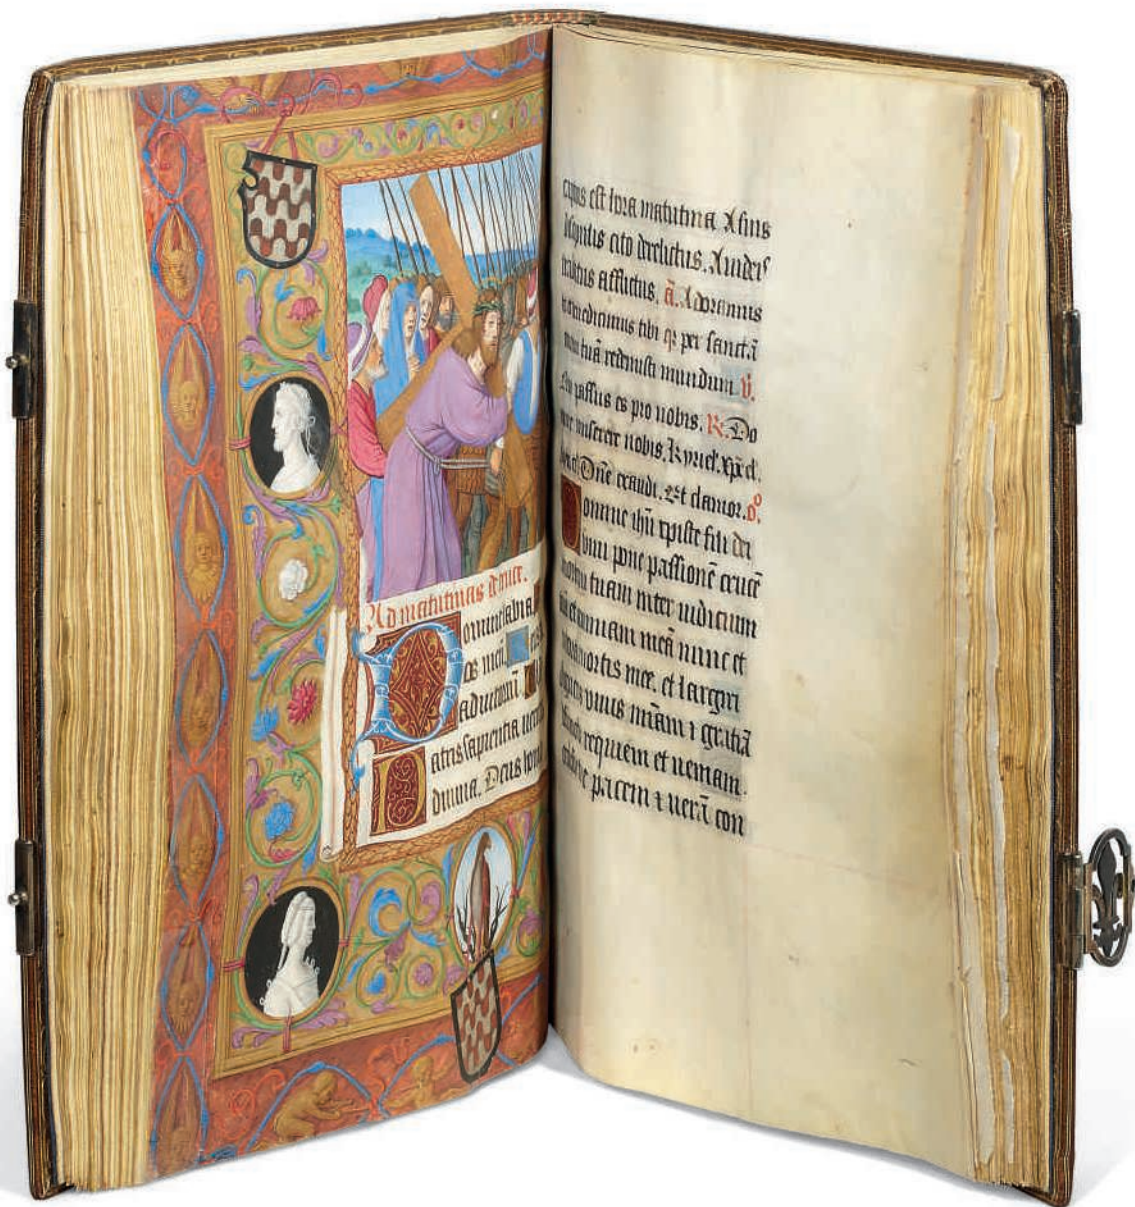 Ad matutinas de cruce.
Domine labia
es meū
ad iutoriū
Patris sapientia uerita
diuina. Deus hom
captus est hora matutina A suis
discipulis cito derelictus. A iudeis
traditus afflictus. ā. Adoramus
benedicimus tibi qr per sanctā
tuā redemisti mundum. v̄.
passus es pro nobis. R. Do
miserere nobis. Kyriel. xp̄el.
Dñe exaudi. Et clamor. o°.
Domine ihū xpiste fili dei
viui pone passionē crucē
mortē tuam inter iudicium
et animam meā nunc et
mortis mee. et largiri
viuis miām ⁊ gratiā
requiem et ueniam.
pacem ⁊ uerā con